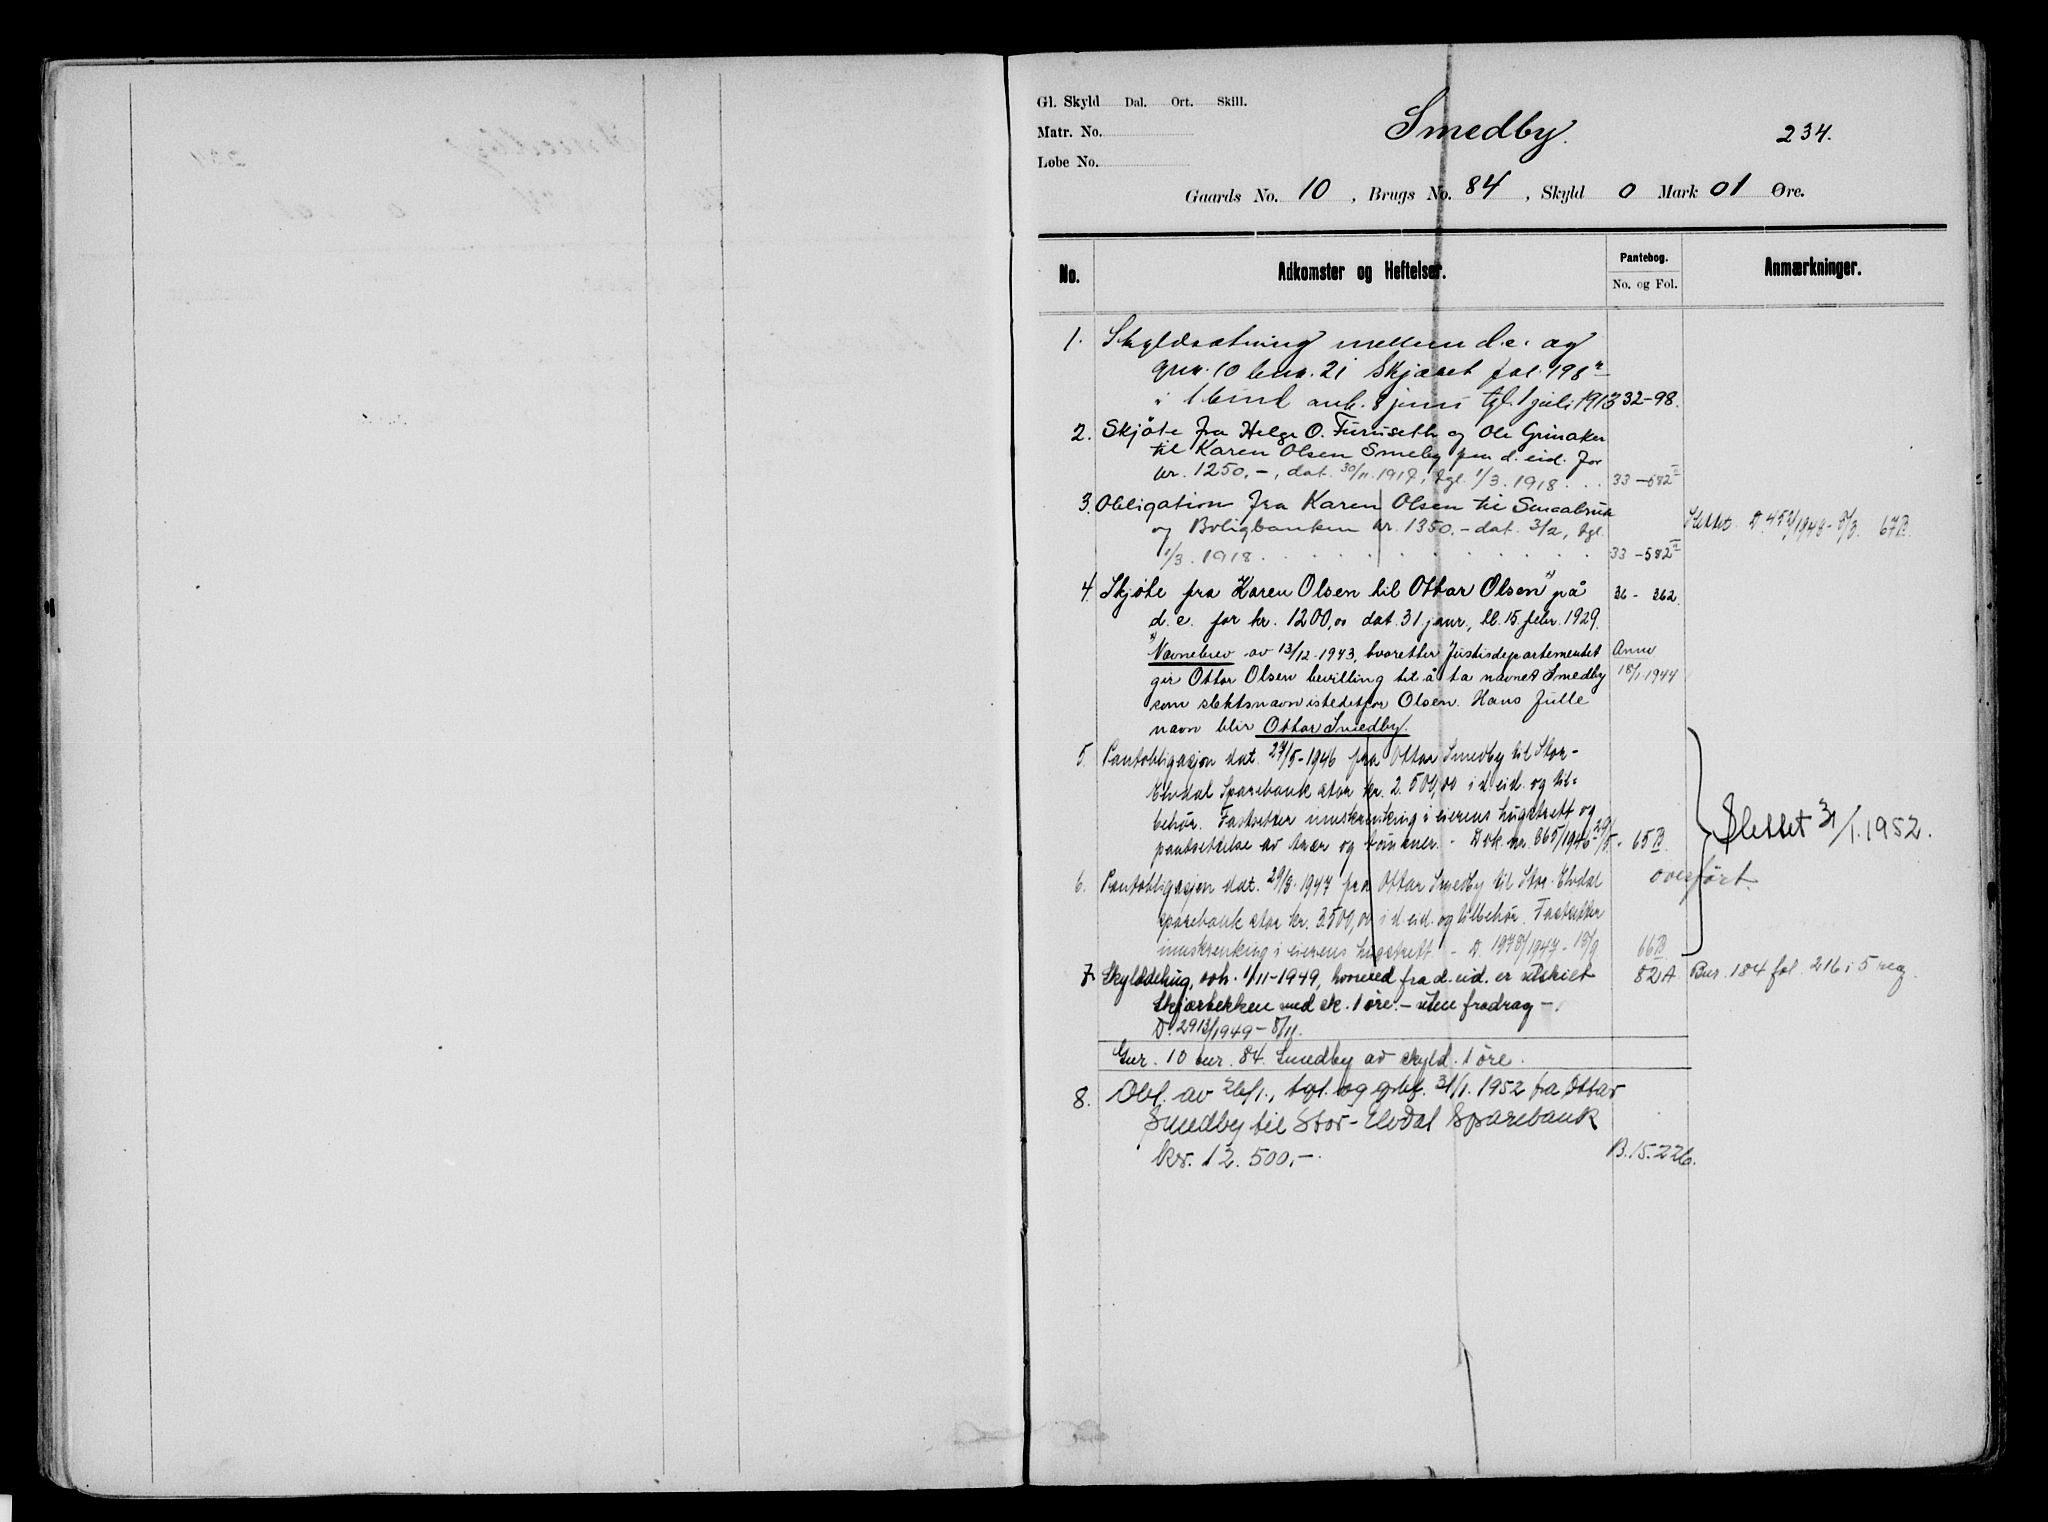 Gl. Skyld Dal. Ort. Skill.
Matr. No.
Løbe No.
Smedby.
234.
Gaards No. 10, Brugs No. 84, Skyld 0 Mark 01 Øre.
No.
Adkomster og Heftelser.
Pantebog.
No. og Fol.
Anmærkninger.
1. Skyldsætning mellem d.e. og
gnr. 10 bnr. 21 Skjæret fol. 198
i 1 bind anh. 8 juni tgl. 1 juli 1913 32-98.
2. Skjöte fra Helge O. Furuseth og Ole Grinaker
til Karen Olsen Smeby paa d. eid. for
kr. 1250,-, dat. 30/11.1917, tgl. 1/3. 1918 . . . 33-582II
3. Obligation fra Karen Olsen til Smaabruk
og Boligbanken kr. 1350.- dat. 3/2, tgl.
1/3. 1918 . . . 33-582II
Slettet. D. 452/1948 - 8/3. 67B.
4. Skjøte fra Karen Olsen til Ottar Olsen x) på 36 - 362.
d.e. for kr. 1200,00 dat. 31 janr., tl. 15 febr. 1929.
x) Navnebrev av 13/12-1943, hvoretter Justisdepartementet Anm
gir Ottar Olsen bevilling til å ta navnet Smedby 18/1.1944
som slektsnavn istedetfor Olsen. Hans fulle
navn blir Ottar Smedby.
5. Pantobligasjon dat. 27/5-1946 fra Ottar Smedby til Stor-
Elvdal Sparebank stor kr. 2.500,00 i d. eid. og til-
behör. Fastsetter innskrenking i eierens hugstrett og
pantsettelse av trær og tömmer. - Dok. nr. 865/1946-29/5. - 65B.
Slettet 31/1.1952.
6. Pantobligasjon dat. 29/8-1947 fra Ottar Smedby til Stor-Elvdal
overført.
sparebank stor kr. 3.500,00 i d. eid. og tilbehör. Fastsetter
innskrenking i eierens hugstrett - D. 1978/1947 - 18/9 66B
7. Skylddeling, avh. 1/11-1949, hvorved fra d. eid. er utskilt 82A Bnr. 184 fol. 216 i 5 reg.
Skjærbekken med sk. 1 øre. - uten fradrag -
D. 2913/1949 - 8/11.
Gnr. 10 bnr. 84. Smedby av skyld 1 øre.
8. Obl. av 26/1., tgl. og gbf. 31/1. 1952 fra Ottar
Smedby til Stor-Elvdal Sparebank
kr. 12.500,-. B.15.226.